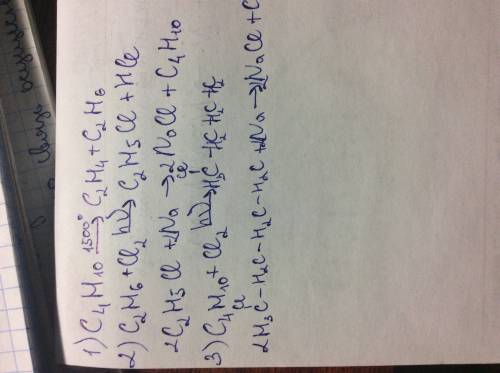 1) C4H10 1500° → C2H4 + C2H6
2) C2H6 + Cl2 hν → C2H5Cl + HCl
2C2H5Cl + 2Na → 2NaCl + C4H10
3) C4H10 + Cl2 hν →
2H3C - H2C - H2C - H2C + 2Na → 2NaCl +